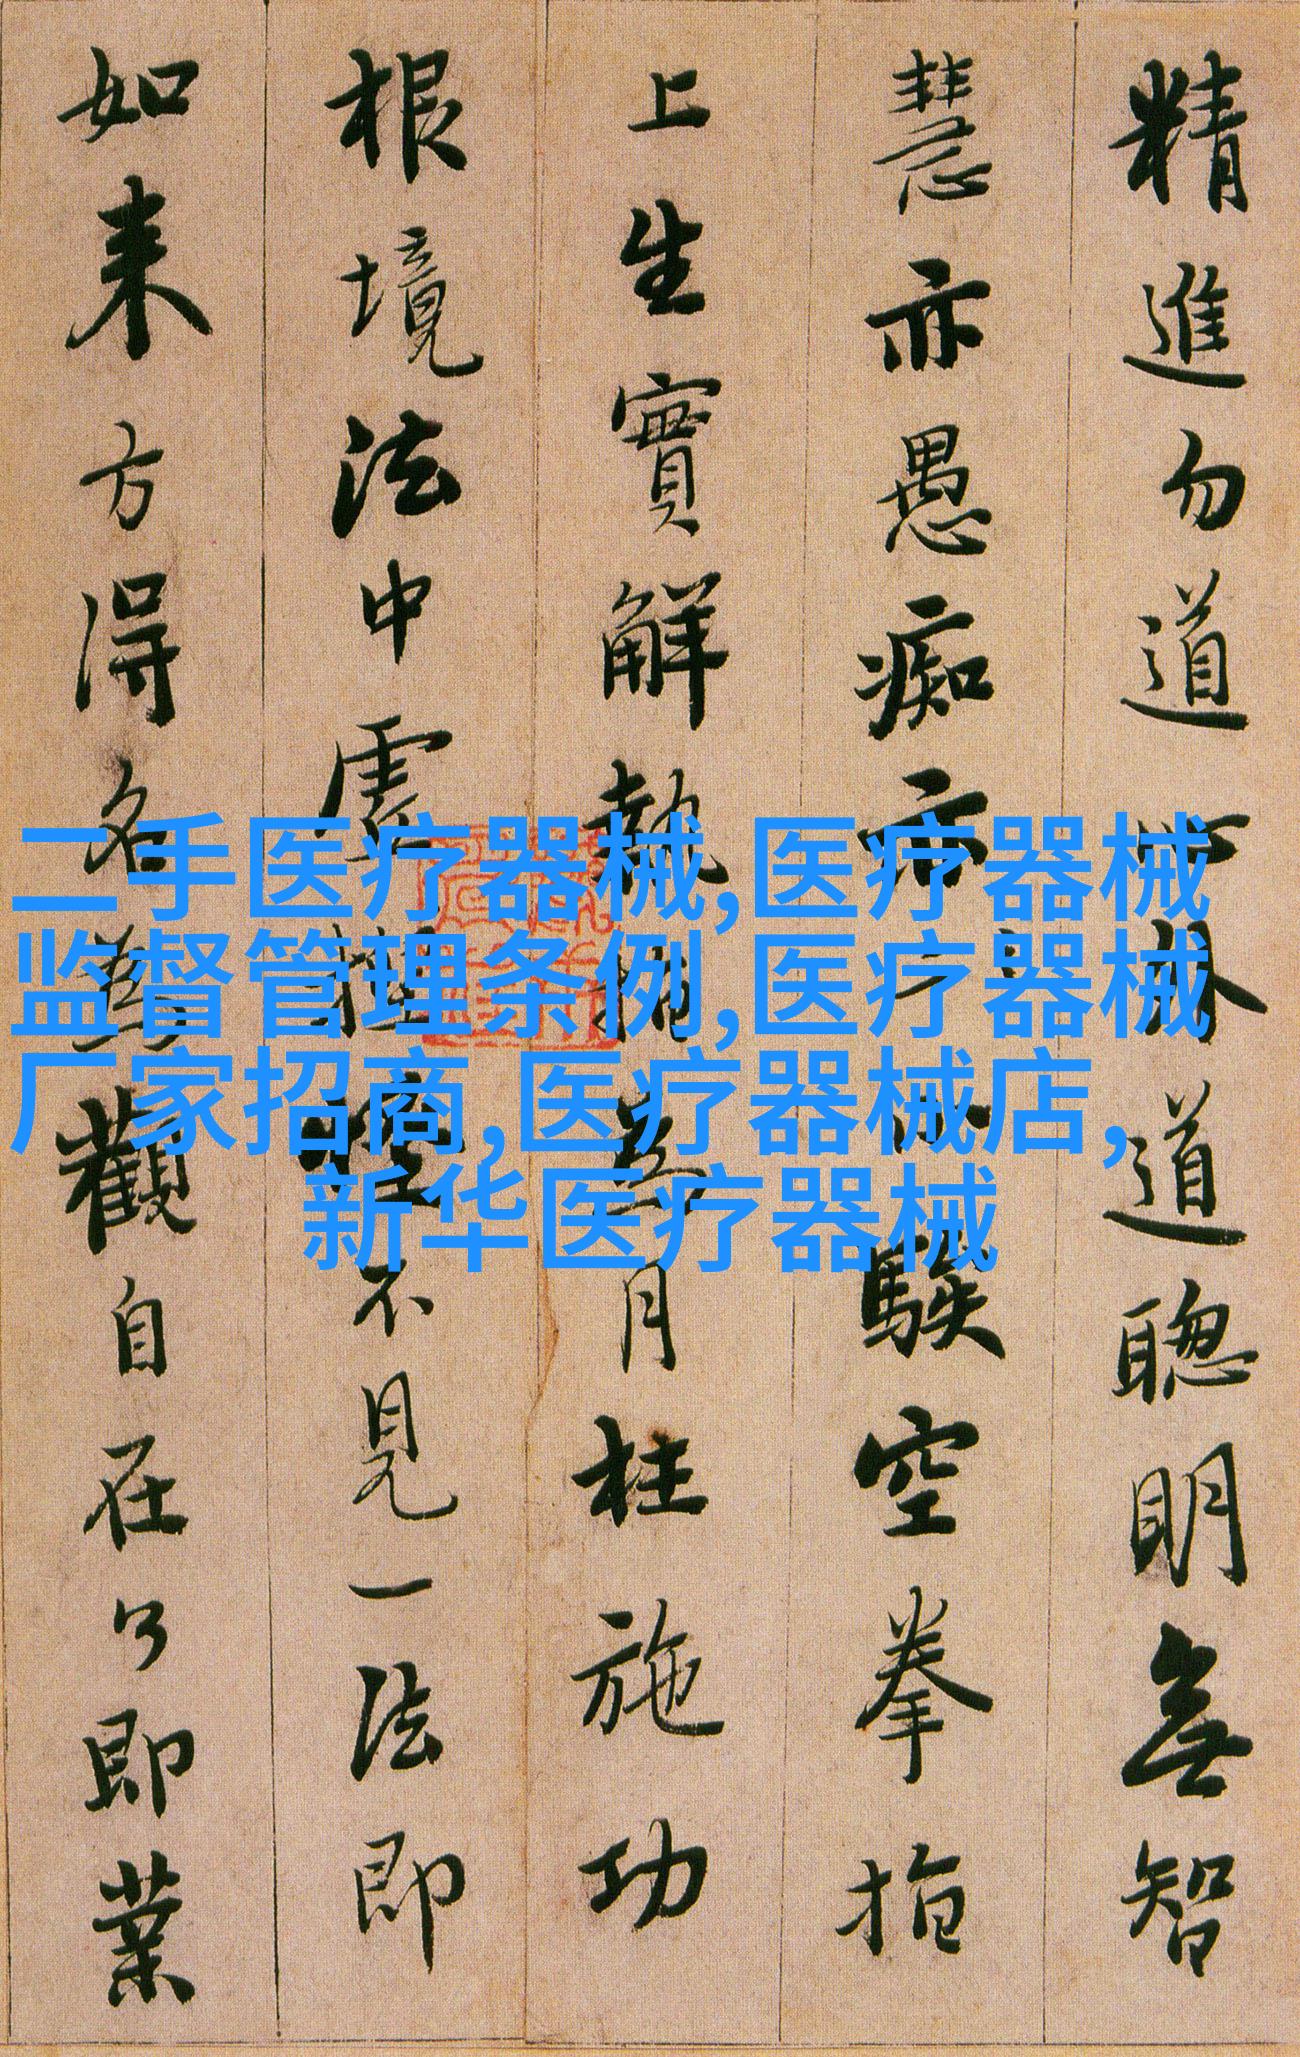 精進勿道心外道聰明無智
慧亦愚痴亦小騃空拳指
上生實解執指為月枉施功
根境法中虛不見一法即
如来方得名為觀自在了即業
二手医疗器械,医疗器械
监督管理条例,医疗器械
厂家招商,医疗器械店,
新华医疗器械